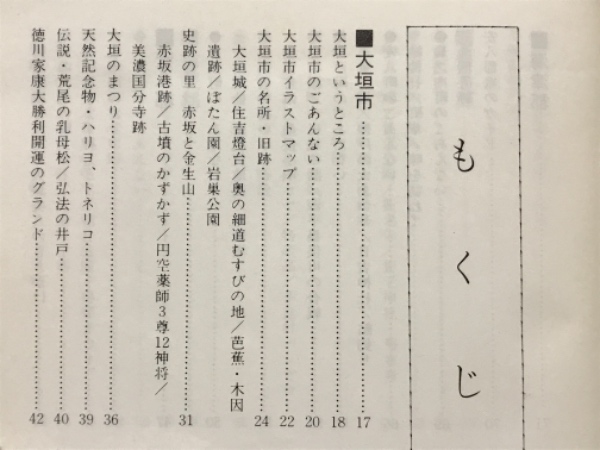 もくじ
■大垣市……………………17
大垣というところ……………………18
大垣市のごあんない……………………20
大垣市イラストマップ……………………22
大垣市の名所・旧跡……………………24
大垣城／住吉燈台／奥の細道むすびの地／芭蕉・木因
遺跡／ぼたん園／岩巣公園
史跡の里 赤坂と金生山……………………31
赤坂港跡／古墳のかずかず／円空薬師3尊12神将／
美濃国分寺跡
大垣のまつり……………………36
天然記念物・ハリヨ、トネリコ……………………39
伝説・荒尾の乳母松／弘法の井戸……………………40
徳川家康大勝利開運のグランド……………………42